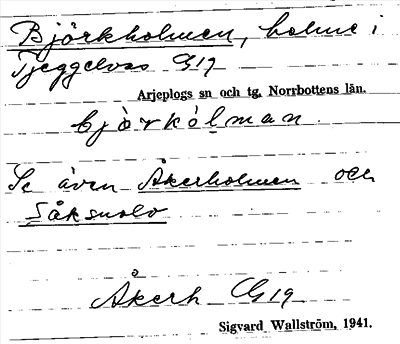 Björkholmen, holme i
Tjeggelvas G19
Arjeplogs sn och tg. Norrbottens län.
bjòrkólman
Se även Åkerholmen och
Såksuolo
Åkerh G19
Sigvard Wallström, 1941.